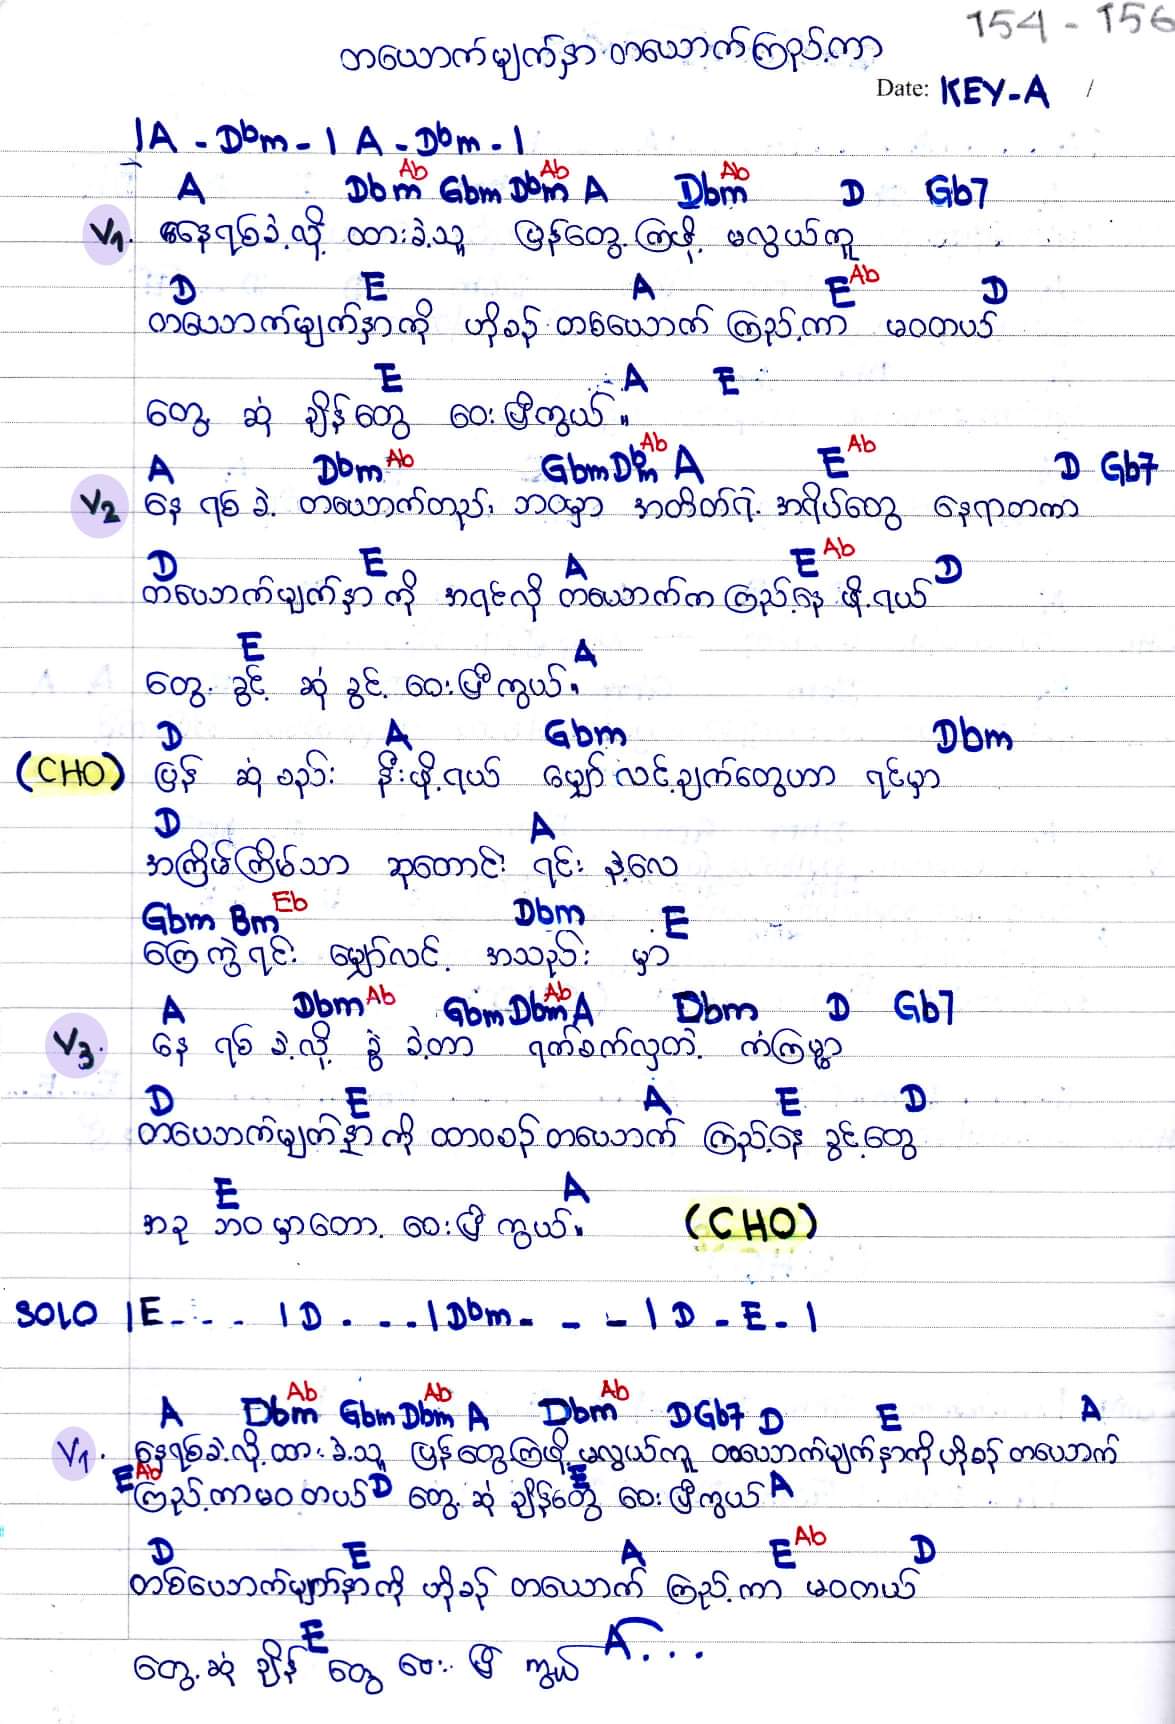 154 - 156
တယောက်မျက်နှာ တယောက်ကြည့်ကာ
Date: KEY-A /
|A - Dbm - | A - Dbm - |
A Dbm Ab Gbm Dbm Ab A Dbm Ab D Gb7
V1. နေရစ်ခဲ့လို့ ထားခဲ့သူ ပြန်တွေ့ကြဖို့ မလွယ်ကူ
D E A E Ab D
တယောက်မျက်နှာကို ဟိုခင် တစ်ယောက် ကြည့်ကာ မဝတယ်
E A E
တွေ့ ဆုံ ချိန်တွေ ဝေးပြီကွယ်။
A Dbm Ab Gbm Dbm Ab A E Ab D Gb7
V2 နေ ရစ် ခဲ့ တယောက်တည်း ဘဝမှာ အတိတ်ရဲ့ အရိပ်တွေ နေရာတကာ
D E A E Ab D
တယောက်မျက်နှာ ကို အရင်လို တယောက်က ကြည့်နေ ဖို့ရယ်
E A
တွေ့ ခွင့် ဆုံ ခွင့် ဝေးပြီကွယ်။
D A Gbm Dbm
(CHO) ပြန် ဆုံ စည်း နီးဖို့ရယ် မျှော်လင့်ချက်တွေဟာ ရင်မှာ
D A
အကြိမ်ကြိမ်သာ ဆုတောင်း ရင်း နဲ့လေ
Gbm Bm Eb Dbm E
ကြေကွဲရင်း မျှော်လင့် အသည်း မှာ
A Dbm Ab Gbm Dbm Ab A Dbm D Gb7
V3. နေ ရစ် ခဲ့လို့ ခွဲ ခဲ့တာ ရက်စက်လှတဲ့ ကံကြမ္မာ
D E A E D
တယောက်မျက်နှာ ကို ထာဝစဉ် တယောက် ကြည့်နေ ခွင့်တွေ
E A
အခု ဘဝ မှာတော့ ဝေးပြီ ကွယ်။ (CHO)
SOLO |E - - - | D - - - | Dbm - - - | D - E - |
A Dbm Ab Gbm Dbm Ab A Dbm Ab D Gb7 D E A
V1. နေရစ်ခဲ့လို့ ထားခဲ့သူ ပြန်တွေ့ကြဖို့ မလွယ်ကူ တယောက်မျက်နှာကို ဟိုခင် တယောက်
E Ab D E A
ကြည့်ကာမဝတယ် တွေ့ ဆုံ ချိန်တွေ ဝေးပြီကွယ်
D E A E Ab D
တစ်ယောက်မျက်နှာကို ဟိုခင် တယောက် ကြည့်ကာ မဝတယ်
E A...
တွေ့ ဆုံ ချိန် တွေ ဝေး ပြီ ကွယ်